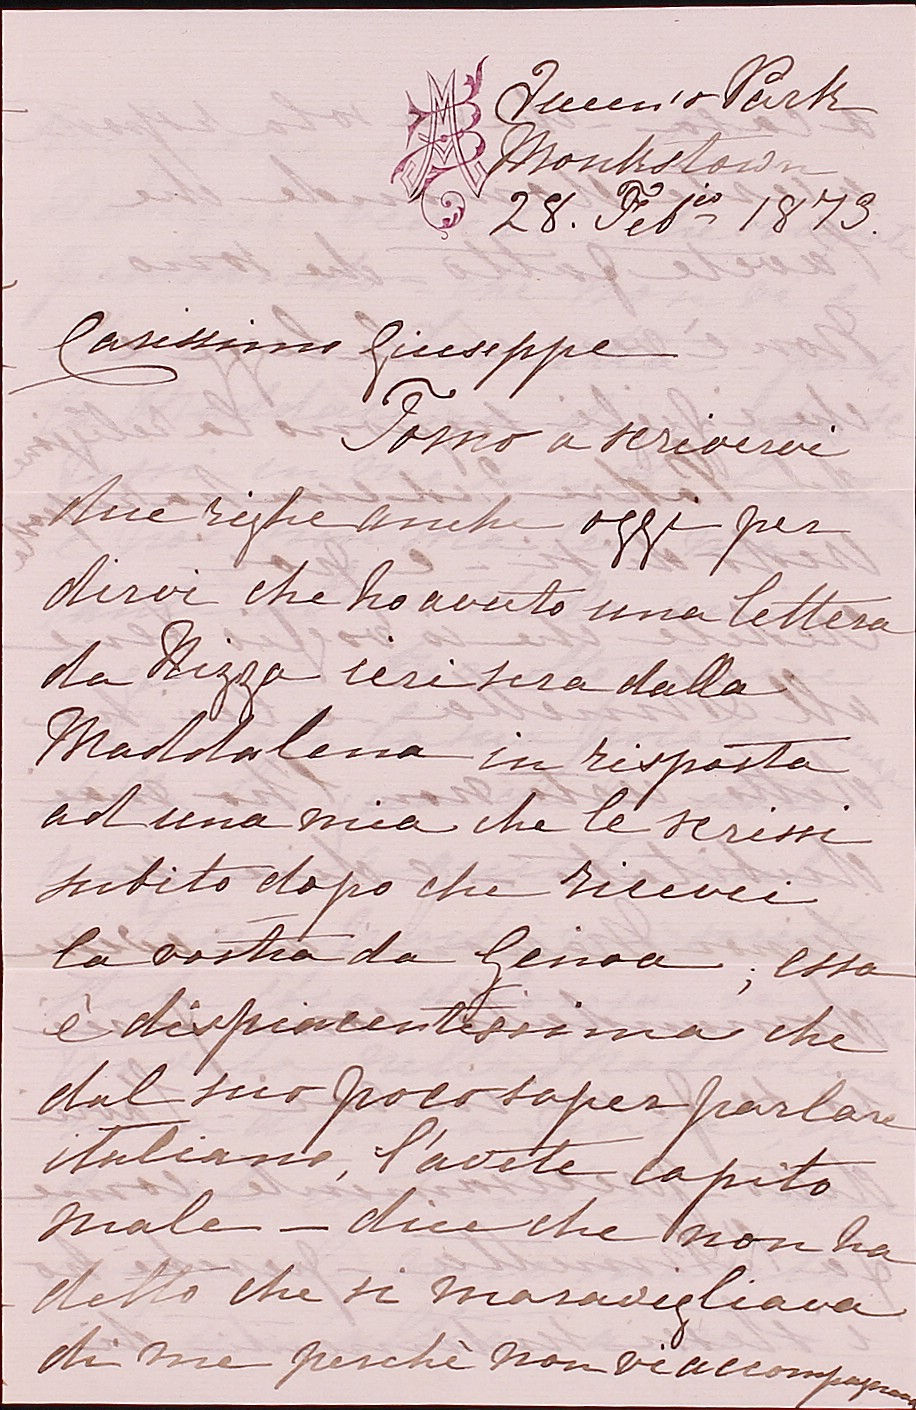 Queen's Park
Monkstown
28. Feb.io 1873.
Carissimo Giuseppe
Torno a scrivervi
due righe anche oggi per
dirvi che ho avuto una lettera
da Nizza ieri sera dalla
Maddalena in risposta
ad una mia che le scrissi
subito dopo che ricevei
la vostra da Genoa; essa
è dispiacentissima che
dal suo poco saper parlare
italiano, l'avete capito
male – dice che non ha
detto che si maravigliava
di me perchè non vi accompagnavo